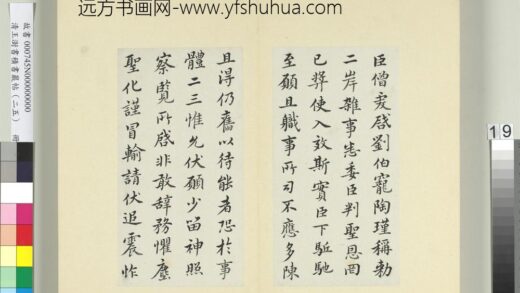 远方书画网-www.yfshuhua.com
臣僧虔啓劉伯寵陶瑾稱勅
二岸雜事悉委臣判聖恩罔
已獎使入敦斯實臣下駈馳
至願且職事所司不應多陳
且得仍舊以待能者恐於事
體二三惟允伏願少留神照
察覽所啓非敢辞務懼塵
聖化謹冒輸請伏追震怍
故書 000745N00000000
清王澍書積書巖帖（二五） 冊
19